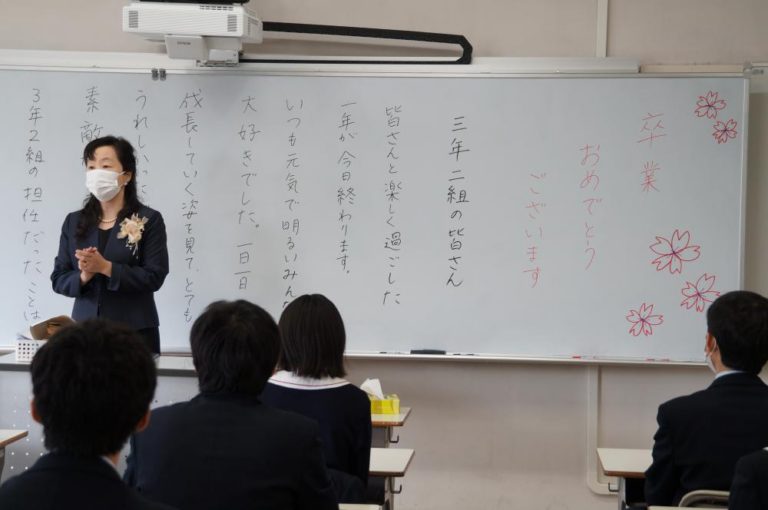 卒業
おめでとう
ございます
三年二組の皆さん
皆さんと楽しく過ごした
一年が今日終わります。
いつも元気で明るいみんな
大好きでした。一日一日
成長していく姿を見て、とても
うれしいった
素敵
3年2組の担任だったことは
EPSON